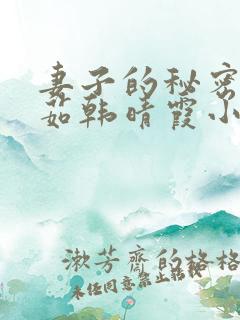 妻子的秘密
茹韩晴霞小
漱芳齋的格格
未任同意禁止转载